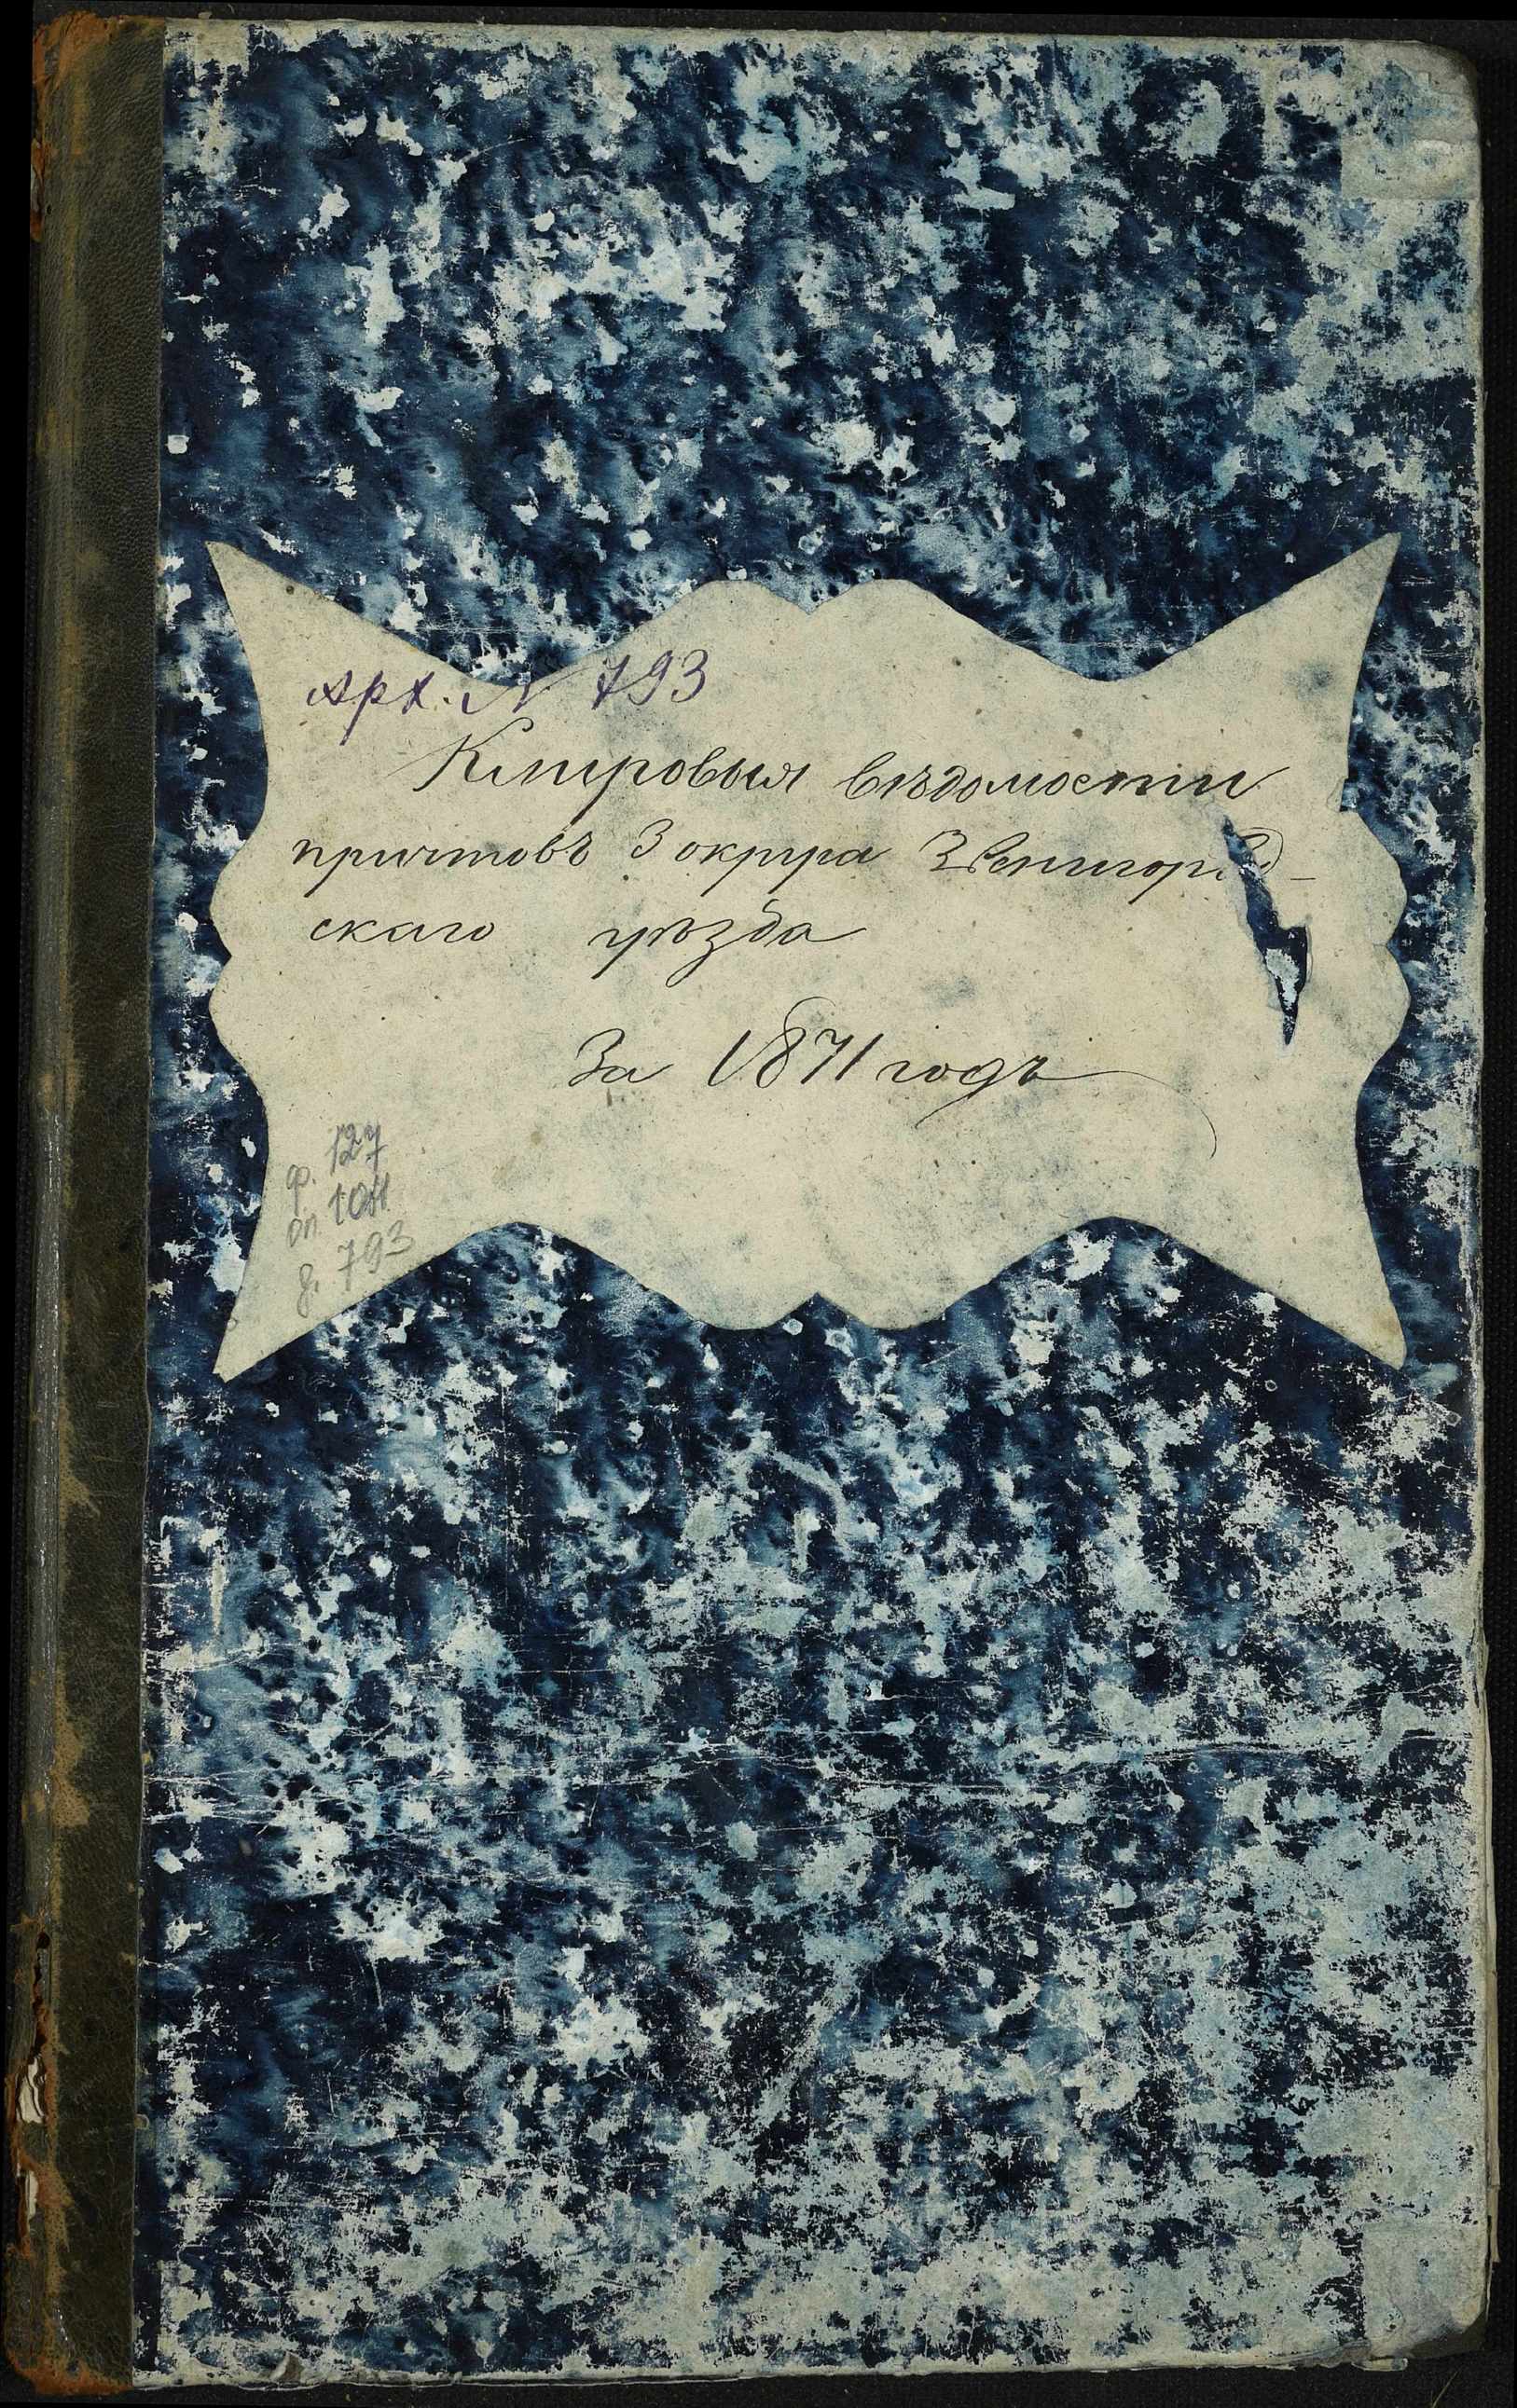 Арх. N 793
Клировыя вѣдомости
причтовъ 3 округа Звенигород-
скаго уѣзда
За 1871 годъ
ф. 127
оп. 1011
д. 793